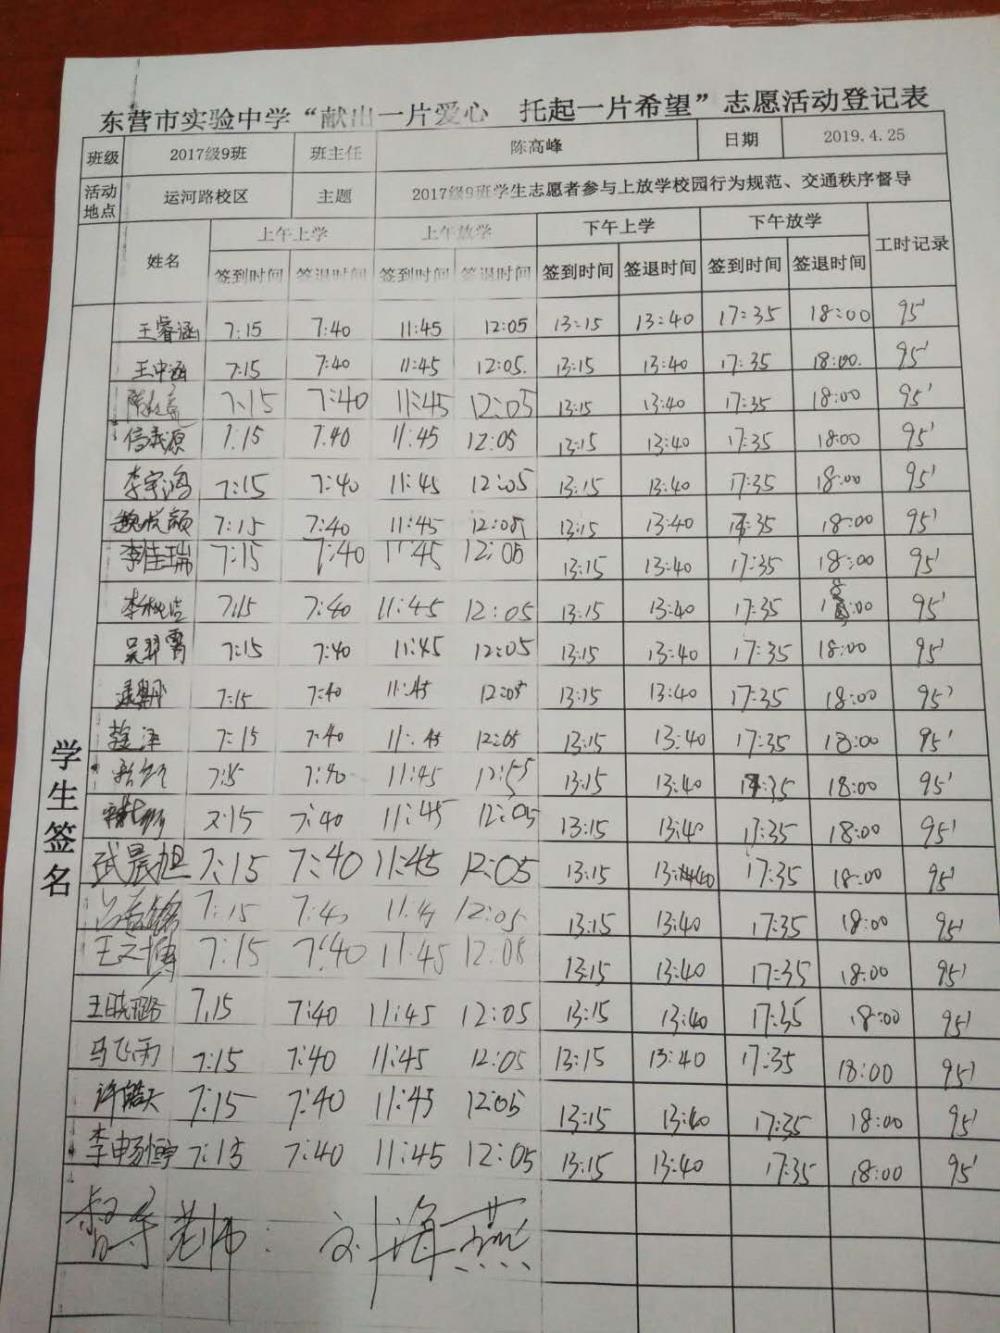 东营市实验中学“献出一片爱心 托起一片希望”志愿活动登记表
班级 2017级9班 班主任 陈高峰 日期 2019.4.25
活动地点 运河路校区 主题 2017级9班学生志愿者参与上放学校园行为规范、交通秩序督导
姓名 上午上学 上午放学 下午上学 下午放学 工时记录
签到时间 签退时间 签到时间 签退时间 签到时间 签退时间 签到时间 签退时间
学生签名
王睿涵 7:15 7:40 11:45 12:05 13:15 13:40 17:35 18:00 95'
王中涵 7:15 7:40 11:45 12:05. 13:15 13:40 17:35 18:00. 95'
7:15 7:40 11:45 12:05 13:15 13:40 17:35 18:00 95'
7:15 7:40 11:45 12:05 13:15 13:40 17:35 18:00 95'
李宇鸿 7:15 7:40 11:45 12:05 13:15 13:40 17:35 18:00 95'
魏悦颖 7:15 7:40 11:45 12:05 13:15 13:40 17:35 18:00 95'
李佳瑞 7:15 7:40 11:45 12:05 13:15 13:40 17:35 18:00 95'
7:15 7:40 11:45 12:05 13:15 13:40 17:35 18:00 95'
吴羿霄 7:15 7:40 11:45 12:05 13:15 13:40 17:35 18:00 95'
7:15 7:40 11:45 12:05 13:15 13:40 17:35 18:00 95'
7:15 7:40 11:45 12:05 13:15 13:40 17:35 18:00 95'
7:15 7:40 11:45 13:15 13:40 17:35 18:00 95'
7:15 7:40 11:45 12:05 13:15 13:40 17:35 18:00 95'
武晨旭 7:15 7:40 11:45 12:05 13:15 13:40 17:35 18:00 95'
7:15 7:40 12:05 13:15 13:40 17:35 18:00 95'
王文博 7:15 7:40 11:45 12:08 13:15 13:40 17:35 18:00 95'
王晓璐 7:15 7:40 11:45 12:05 13:15 13:40 17:35 18:00 95'
马飞雨 7:15 7:40 11:45 12:05 13:15 13:40 17:35 18:00 95'
许皓天 7:15 7:40 11:45 12:05 13:15 13:40 17:35 18:00 95'
李申畅 7:15 7:40 11:45 12:05 13:15 13:40 17:35 18:00 95'
督导老师：刘海燕